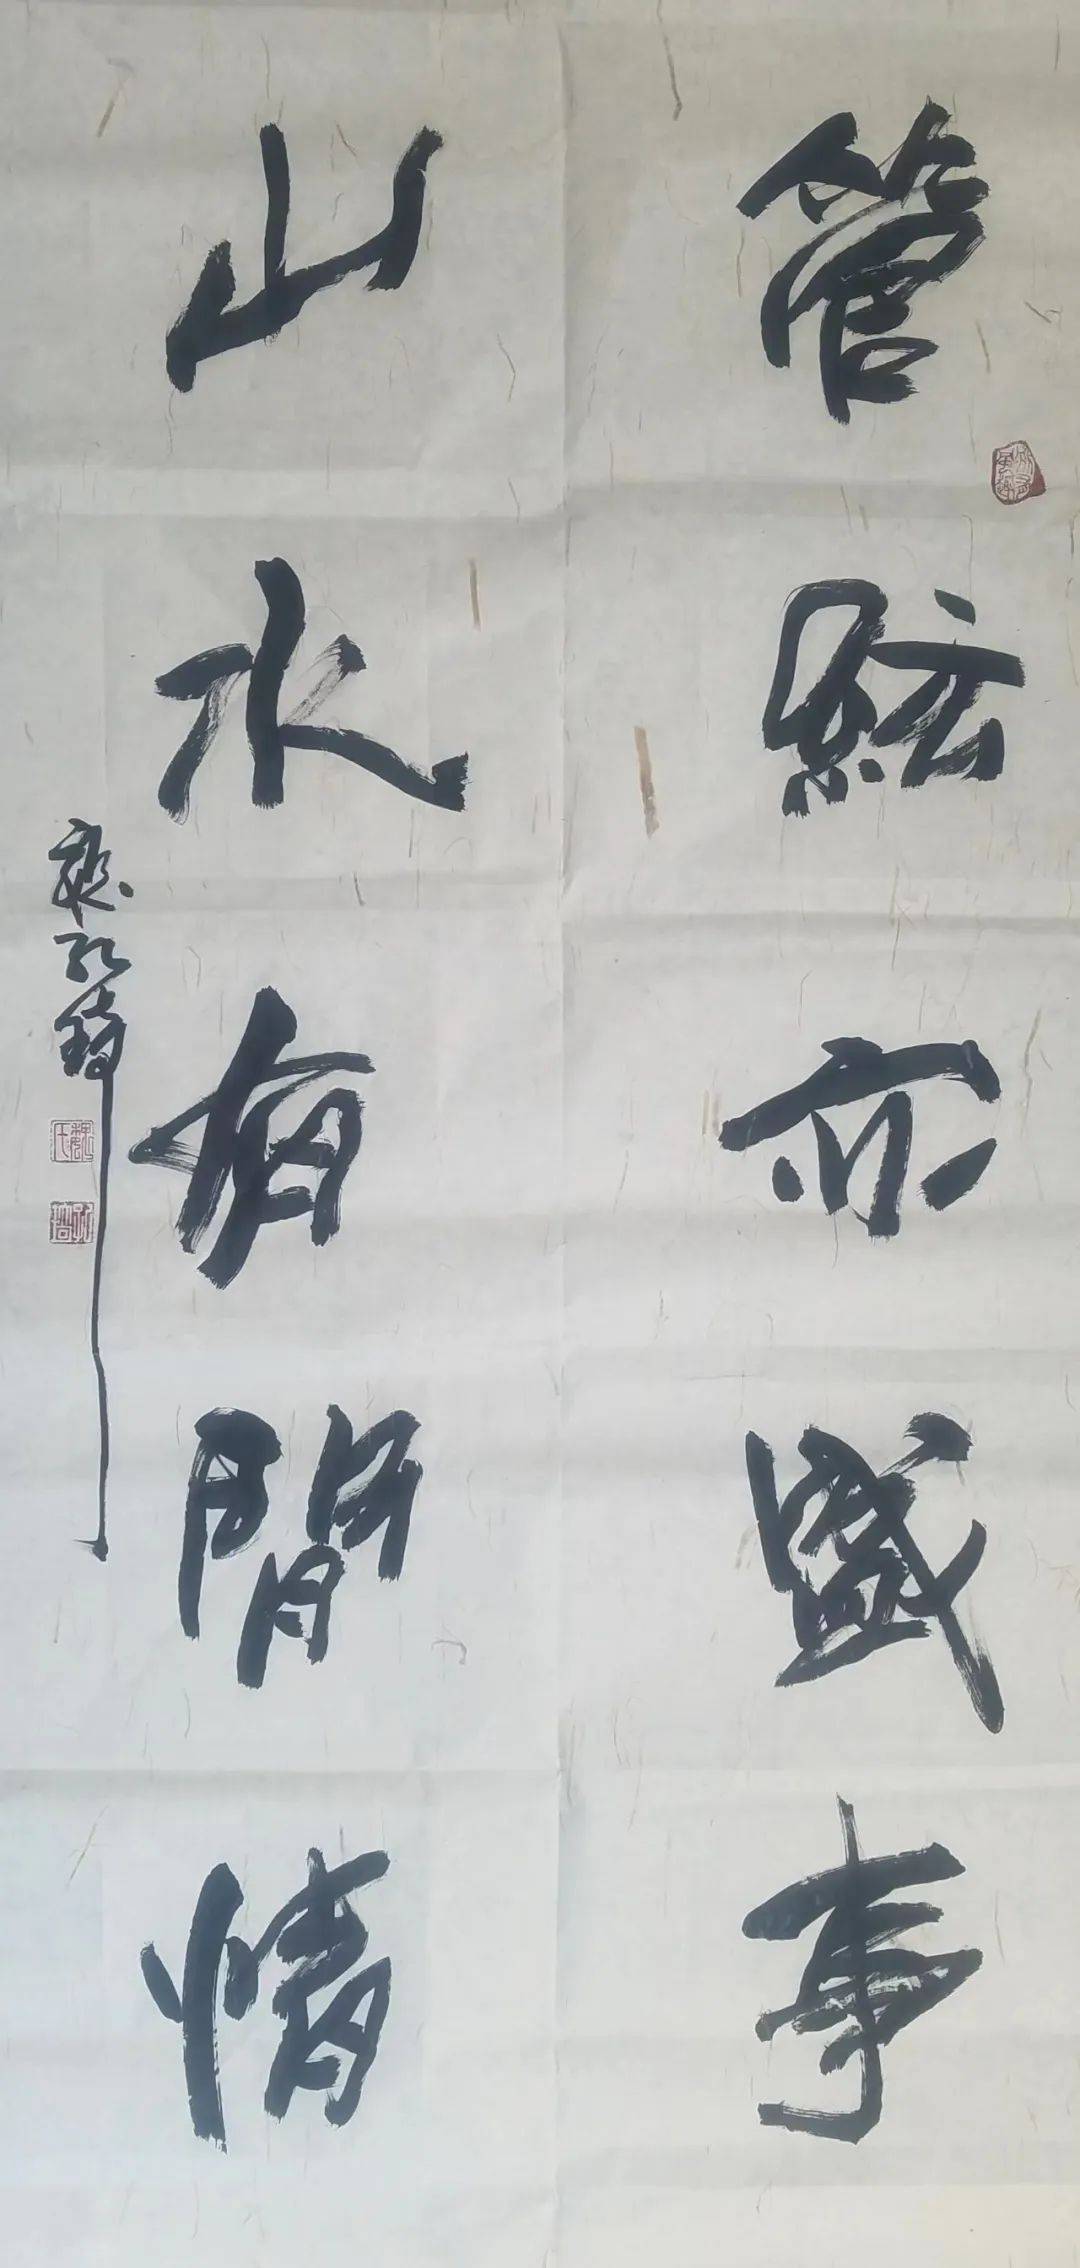 管絃亦盛事
山水有閒情